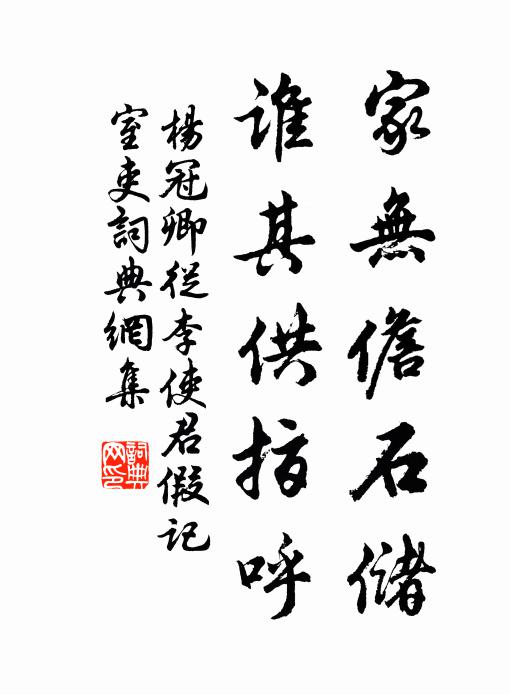 家無儋石儲
誰其供指呼
楊冠卿從李使君假記
室吏詞典網集
詞典網印